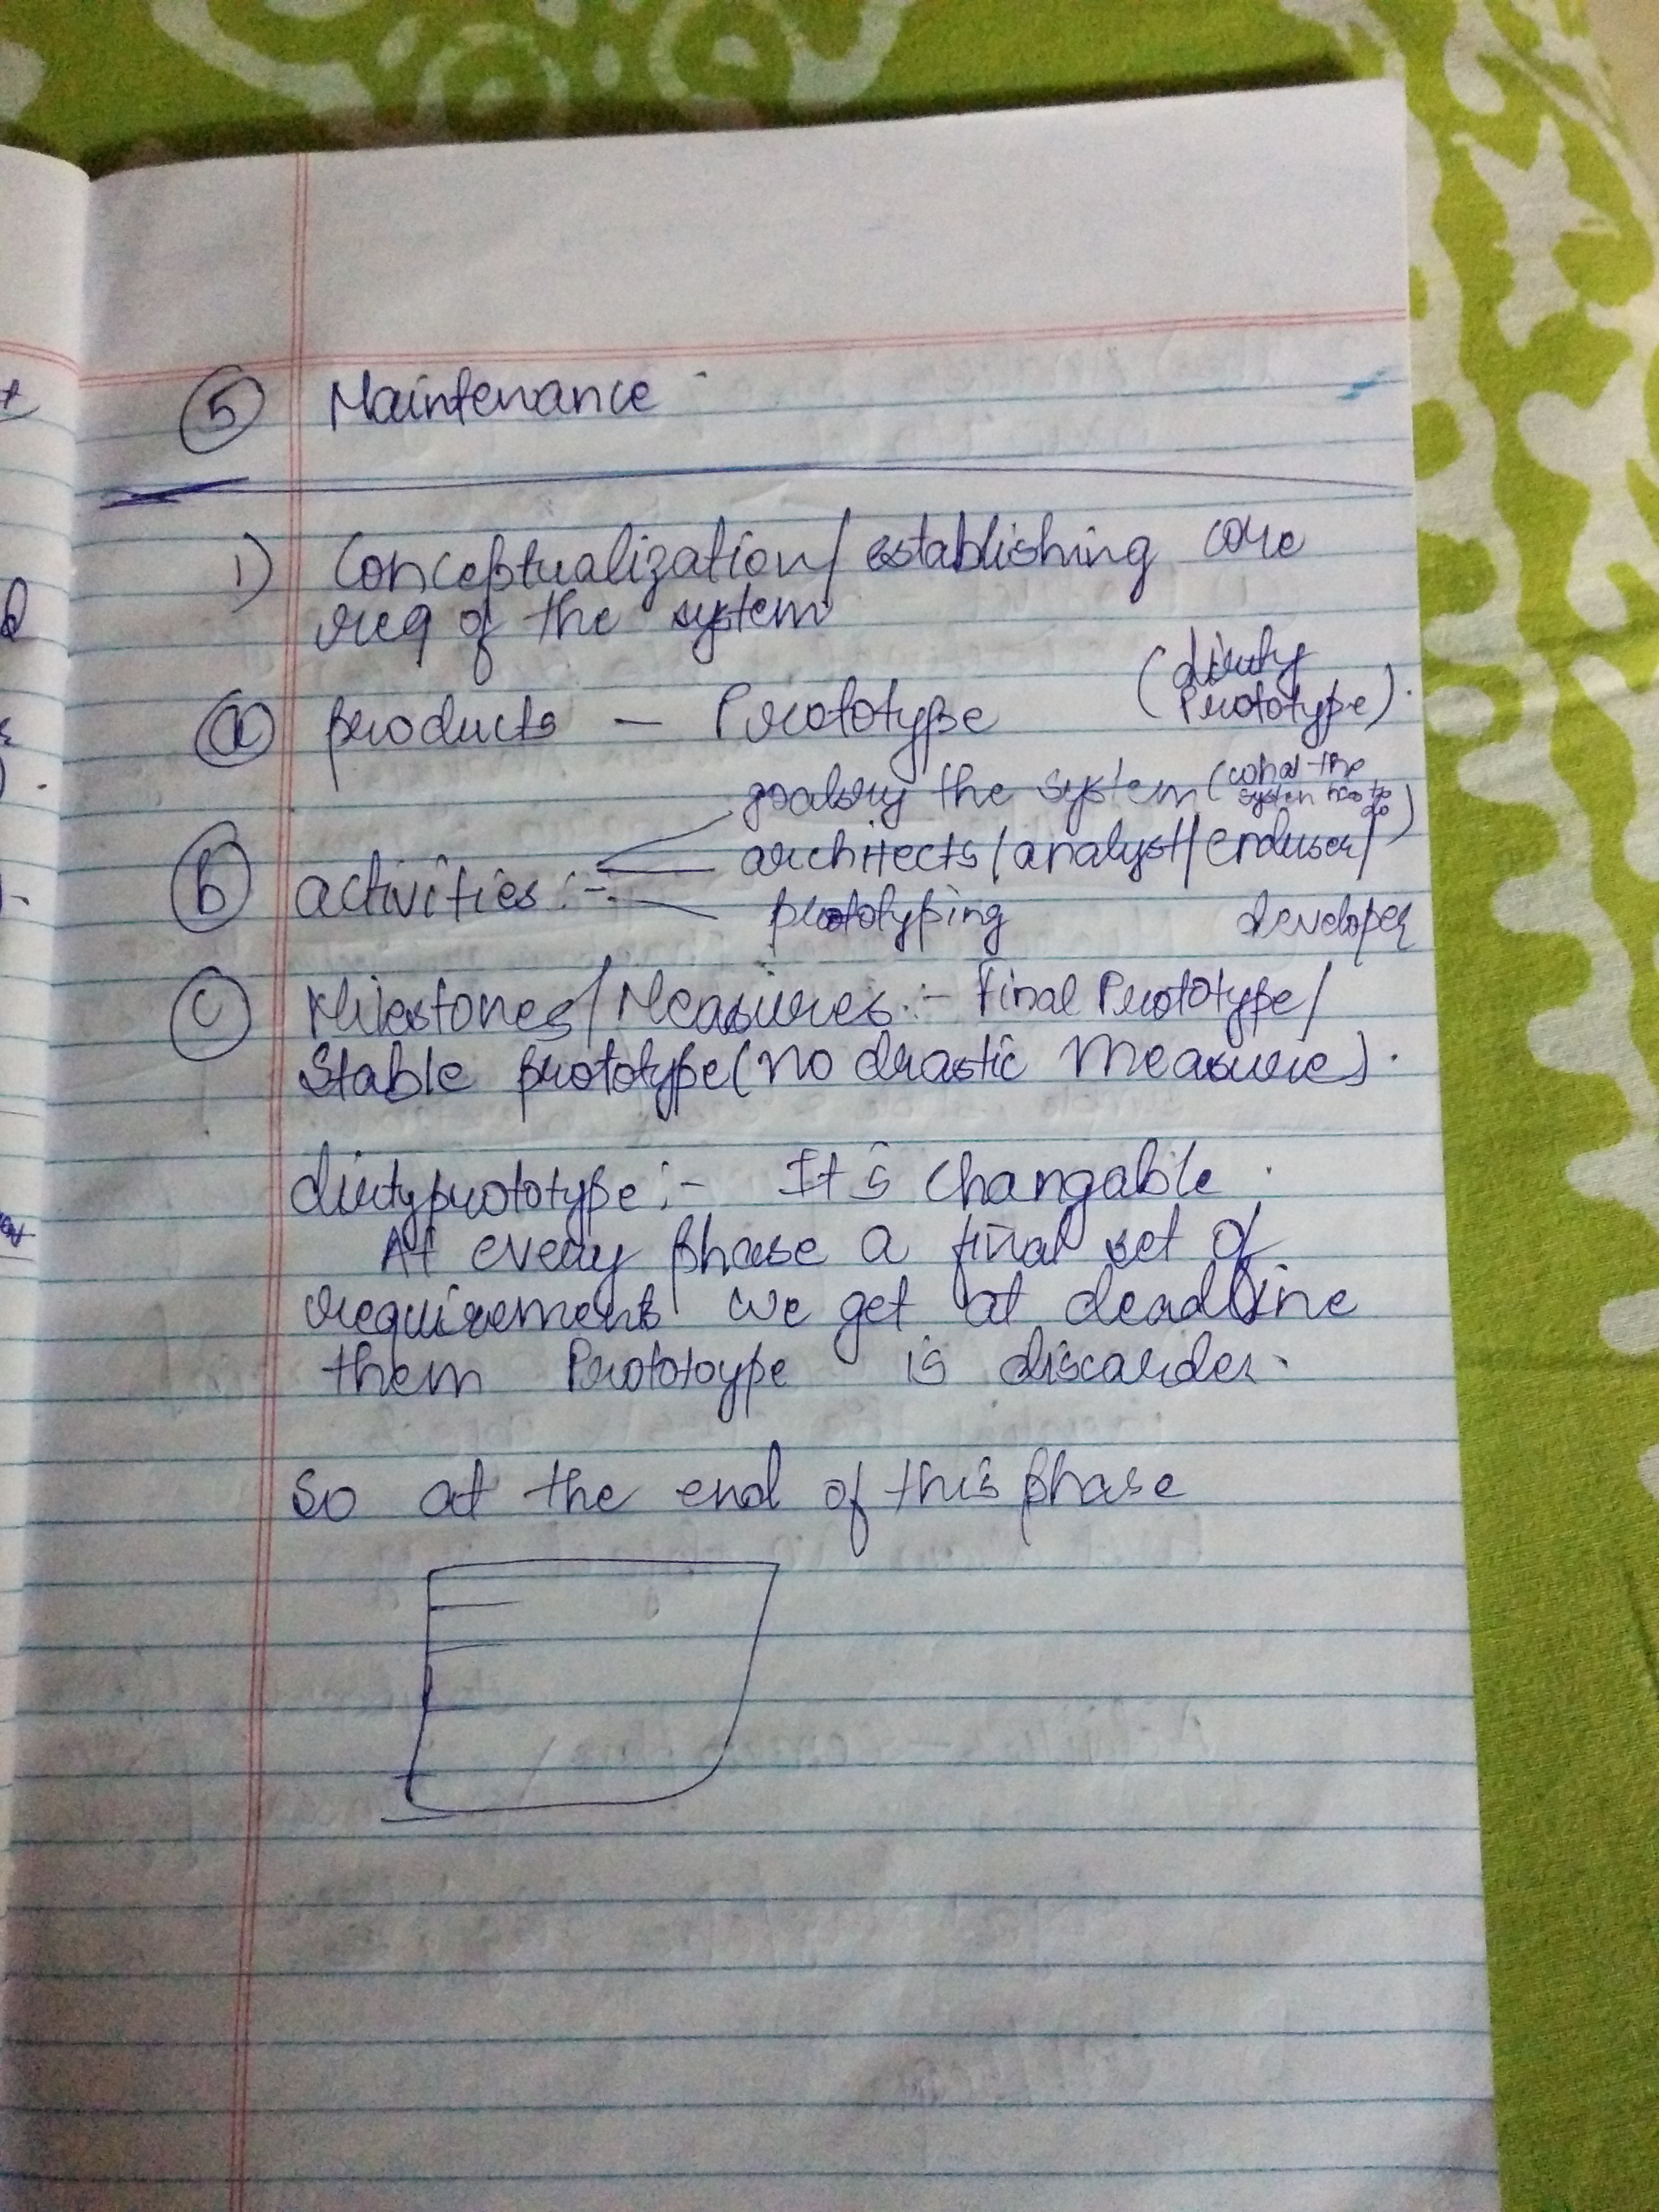 5 Maintenance
1) Conceptualization/establishing core
req of the system
(dirty
a products - Prototype Prototype).
the system (what the
system has to
do)
b activities :- architects/analyst/enduser/
prototyping developer
c Milestones/Measures :- Final Prototype/
Stable prototype (no drastic measure).
dirtyprototype :- It's changable.
At every phase a final set of
requirements we get at deadline
them Prototoype is discarded.
So at the end of this phase